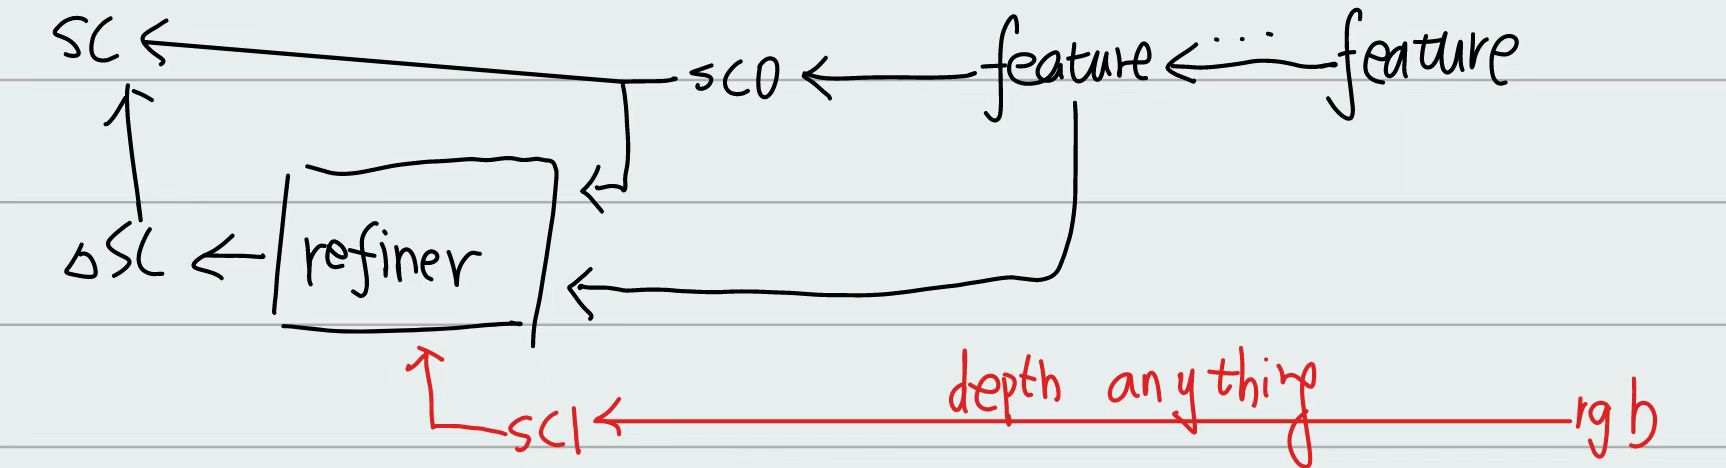 SC sc0 feature ... feature
ΔSC refiner
depth anything
sc1 rgb